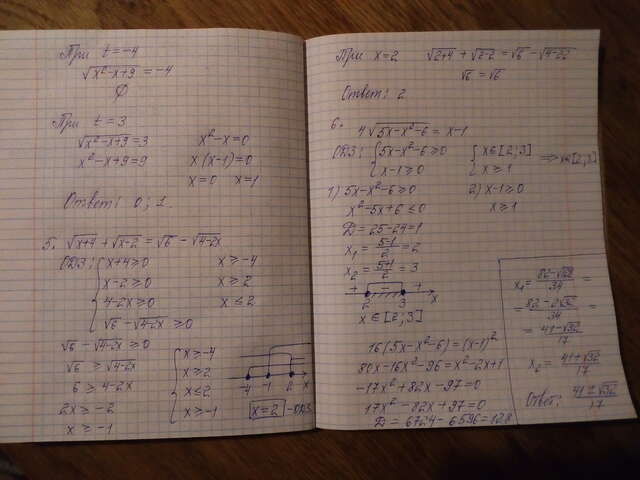 При t=-4
√(x²-x+9) = -4
∅
При t=3
√(x²-x+9) = 3
x²-x+9=9
x²-x=0
x(x-1)=0
x=0 x=1
Ответ: 0; 1.
5. √(x+4) + √(x-2) = √6 - √(4-2x)
ОДЗ: { x+4≥0 x≥-4
x-2≥0 x≥2
4-2x≥0 x≤2
√6 - √(4-2x) ≥0
√6 - √(4-2x) ≥0
√6 ≥ √(4-2x)
6 ≥ 4-2x
2x ≥ -2
x ≥ -1
{ x≥-4
x≥2
x≤2
x≥-1
-4 -1 2 x
x=2 -ОДЗ
При x=2 √(2+4) + √(2-2) = √6 - √(4-2·2)
√6 = √6
Ответ: 2
6. 4√(5x-x²-6) = x-1
ОДЗ: { 5x-x²-6≥0 { x∈[2;3] ⇒ x∈[2;3]
x-1≥0 x≥1
1) 5x-x²-6≥0 2) x-1≥0
x²-5x+6≤0 x≥1
D=25-24=1
x₁ = (5-1)/2 = 2
x₂ = (5+1)/2 = 3
+ - +
2 3 x
x∈[2;3]
16(5x-x²-6) = (x-1)²
80x-16x²-96=x²-2x+1
-17x²+82x-97=0
17x²-82x+97=0
D=6724-6596=128
x₁= (82-√128)/34 =
= (82-2√32)/34 =
= (41-√32)/17
x₂ = (41+√32)/17
Ответ: (41±√32)/17